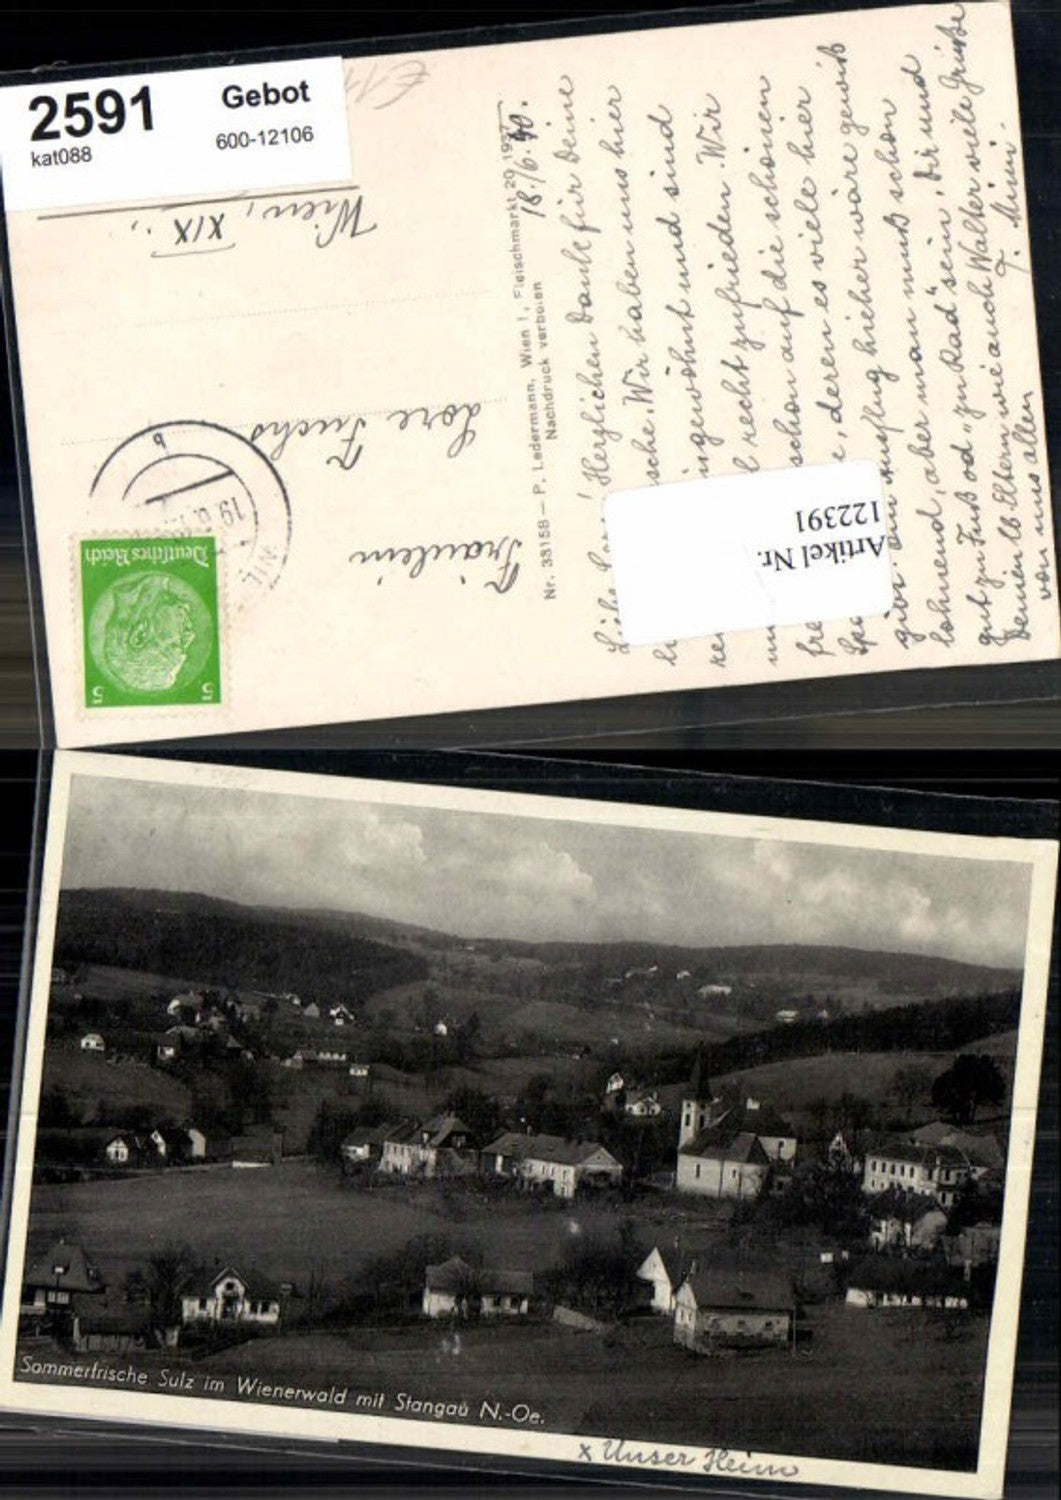 2591
Gebot
kat088
600-12106
Wien,
XIX.,
Lore Fuchs
Fräulein
Deutsches Reich
5 5
19.6.
b
Nr. 33158 — P. Ledermann, Wien I., Fleischmarkt 20, 1937
Nachdruck verboten
18./6. 40.
Liebe! Herzlichen Dank für Deine
sche. Wir haben uns hier
ingewöhnt und sind
recht zufrieden. Wir
schon auf die schönen
deren es viele hier
gibt. Ausflug hieher wäre gewiß
lohnend, aber man muß schon
gut zu Fuß od. "zu Rad" sein. Dir und
Deinen lb. Eltern wie auch Walter viele Grüße
von uns allen
F. Mimi.
Artikel Nr.
122391
Sommerfrische Sulz im Wienerwald mit Stangau N.-Oe.
x Unser Heim